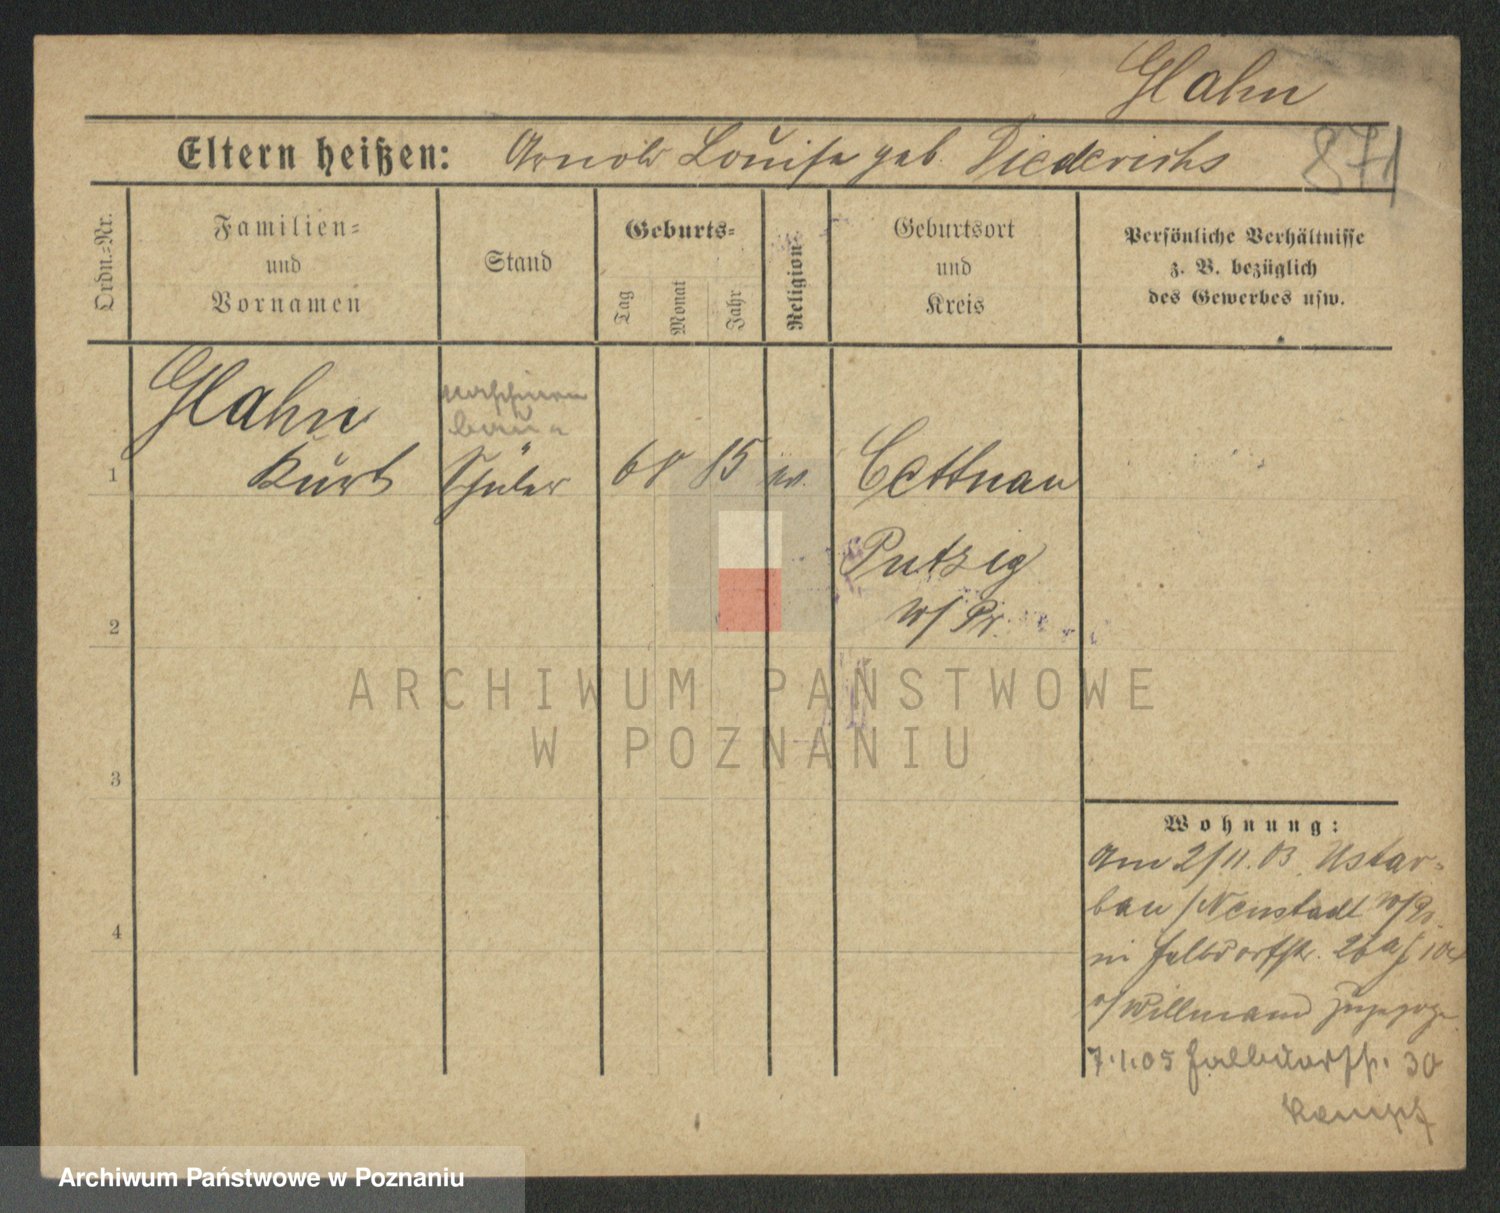 Glahn
871
Eltern heißen: Arnold Louise geb. Diederichs
Ordn.=Nr.
Familien=
und
Vornamen
Stand
Geburts=
Tag
Monat
Jahr
Religion
Geburtsort
und
Kreis
Persönliche Verhältnisse
z. B. bezüglich
des Gewerbes usw.
Glahn
Maschinen
bau
1 Kurt Schüler 6 8 85 ev. Cettnau
Putzig
W/Pr.
2
3
4
Wohnung:
Am 2/11.03. Ustar-
bau / Neustadt W/Pr.
in Halbdorfstr. 26a
b/ Willmann zugezogen
7.1.05 Halbdorfstr. 30
Kempf
ARCHIWUM PAŃSTWOWE
W POZNANIU
Archiwum Państwowe w Poznaniu